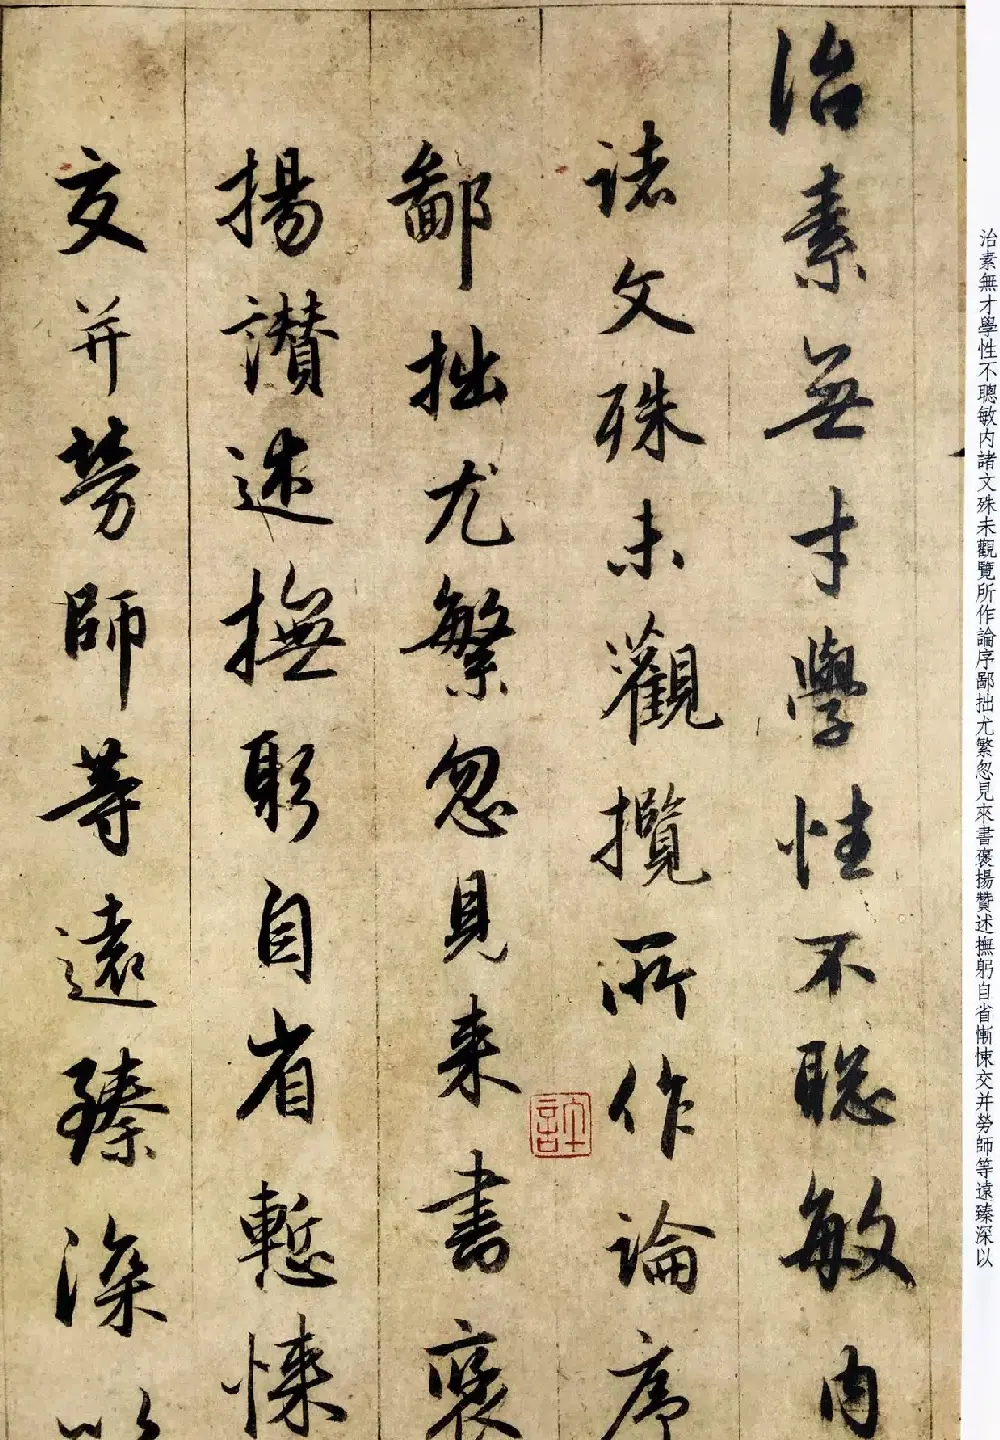 治素無才學性不聰敏内
諸文殊未觀攬所作論序
鄙拙尤繁忽見来書褒
揚讃述撫躬自省慙悚
交并勞師等遠臻深以
治素無才學性不聰敏内諸文殊未觀覽所作論序鄙拙尤繁忽見來書褒揚贊述撫躬自省慚悚交并勞師等遠臻深以